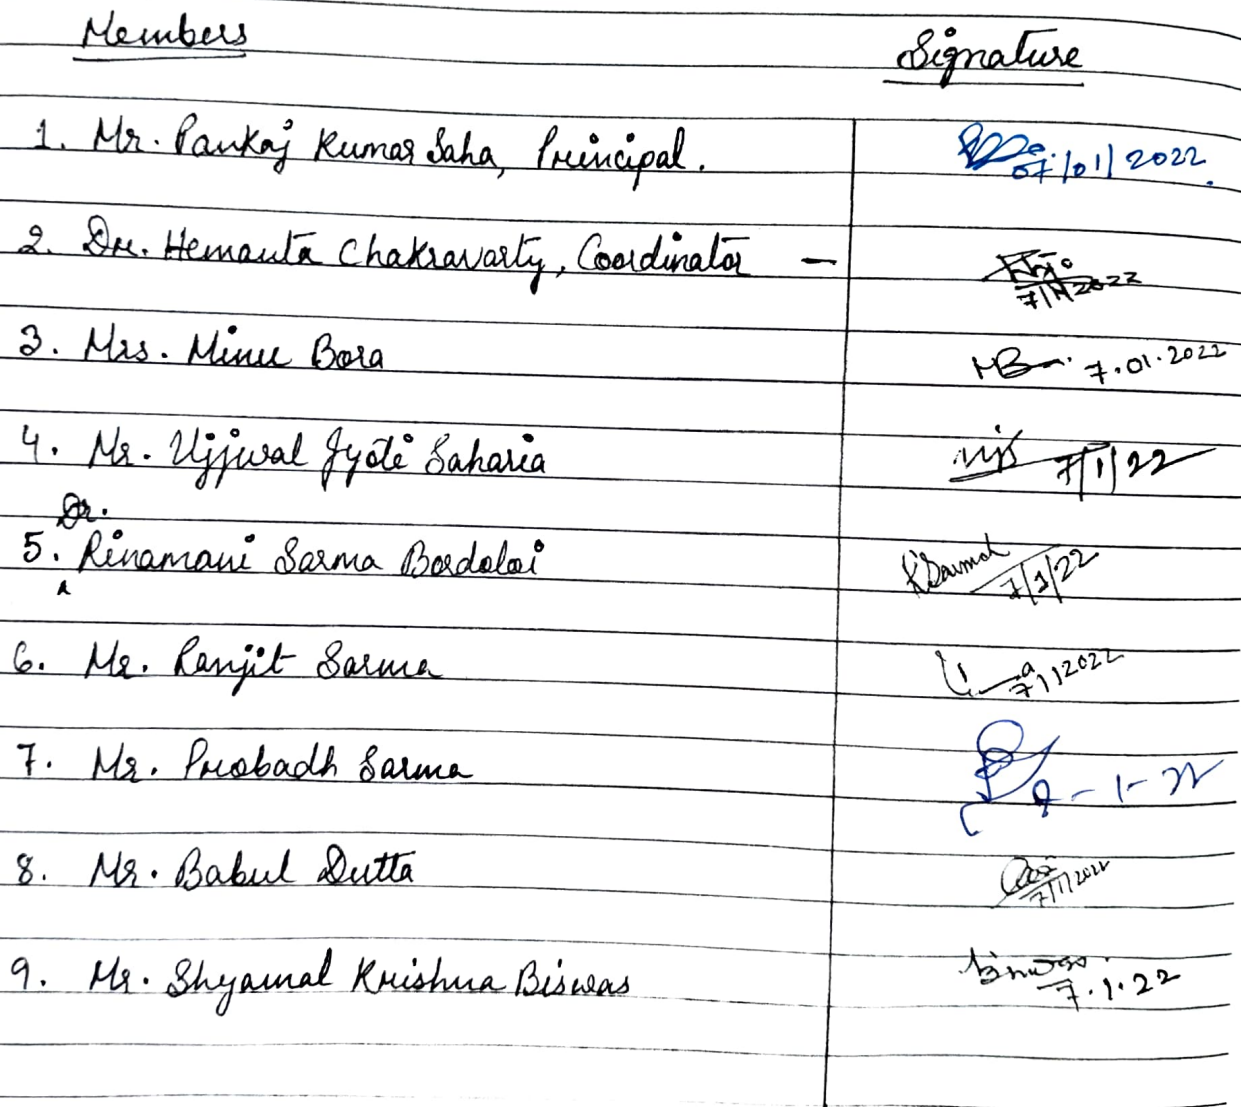 Members Signature
1. Mr. Pankaj Kumar Saha, Principal. 07/01/2022.
2. Dr. Hemanta Chakravarty, Coordinator — 7/1/2022
3. Mrs. Minu Bora MB 7.01.2022
4. Mr. Ujjwal Jyoti Saharia 7/1/22
Dr.
5. Rinamani Sarma Bordoloi RSarmah 7/1/22
6. Mr. Ranjit Sarma 7/1/2022
7. Mr. Probadh Sarma -1-22
8. Mr. Babul Dutta 7/1/2022
9. Mr. Shyamal Krishna Biswas Biswas. 7.1.22